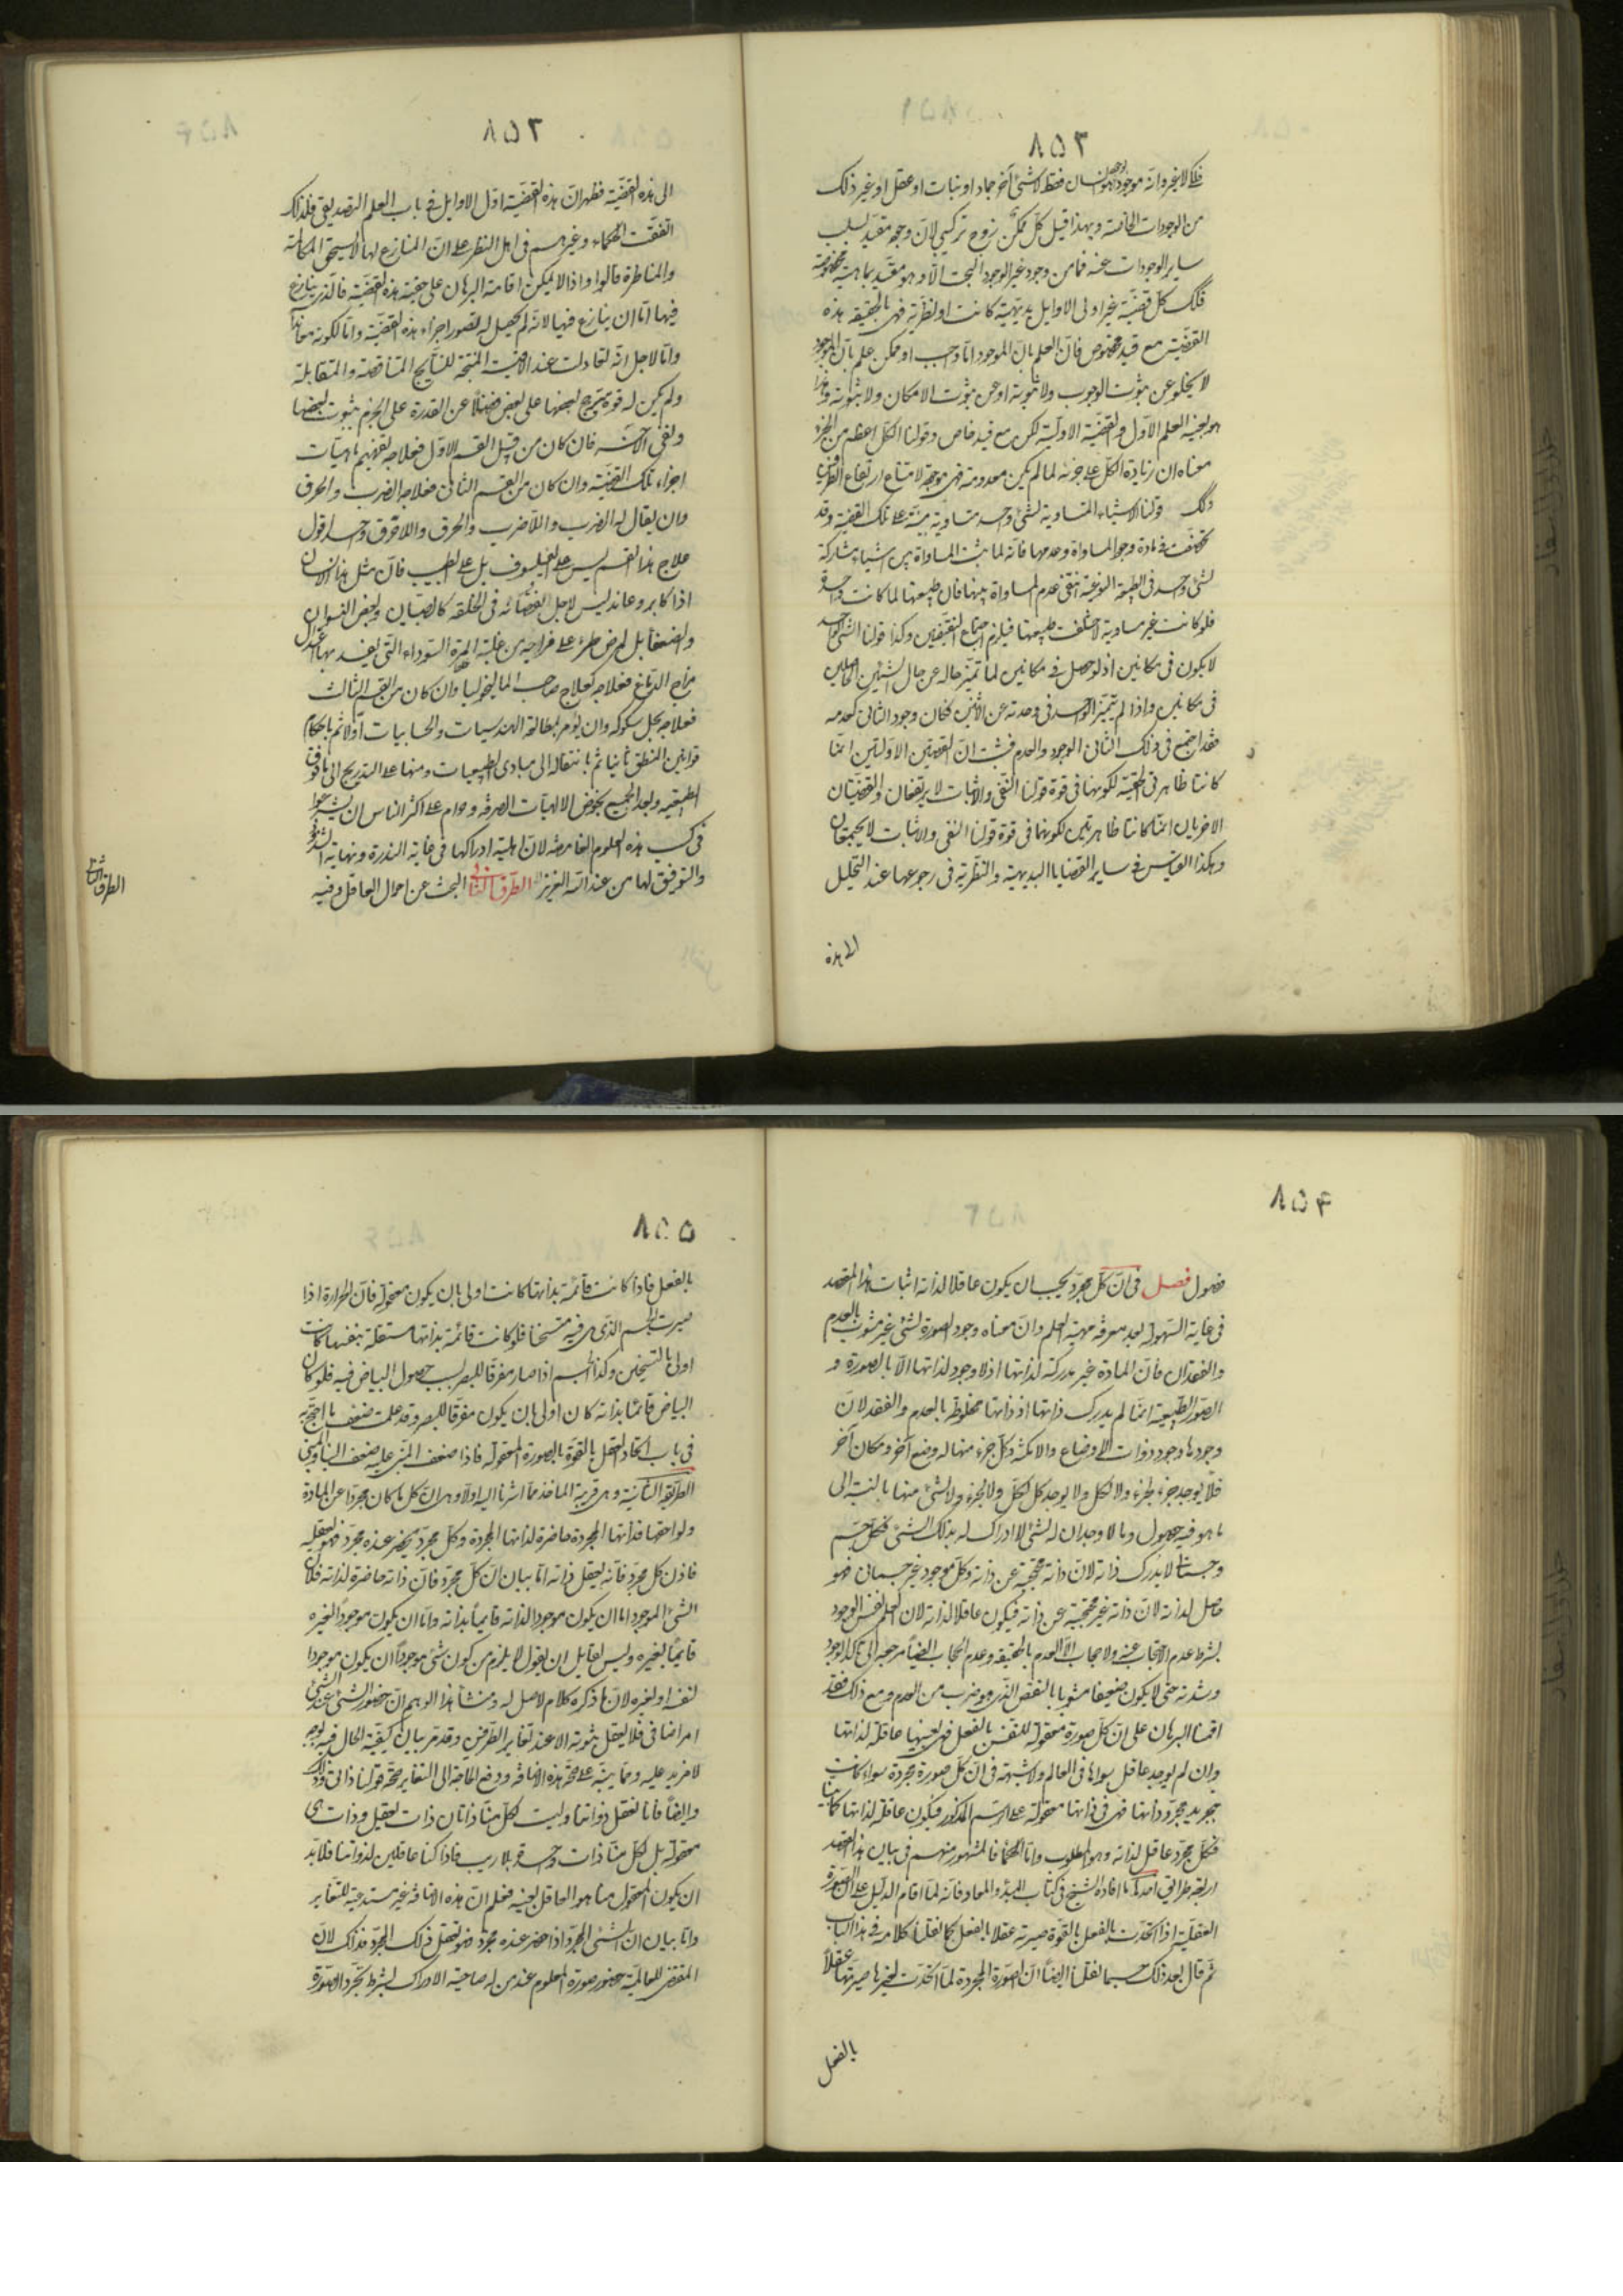 ٨٥٢
فلك لا بغيره وانه موجود بوجود هو انسان فقط لا شئ آخر جماد او نبات او عقل او غير ذلك
من الوجودات الخاصة وبهذا قيل كل ممكن زوج تركيبي لان وجوده مقيد بسلب
ساير الوجودات عنه فما من وجود غير الوجود البحت الا وهو مقيد بماهية مخصوصة
فكك كل قضية غير اولى الاوايل بديهية كانت او نظرية فهى بالحقيقه هذه
القضية مع قيد مخصوص فان العلم بان الموجود اما واجب او ممكن علم بان الموجود
لا يخلو عن ثبوت الوجوب ولا ثبوته او عن ثبوت الامكان ولا ثبوته وهذا
هو بعينه العلم الاول والقضية الاولية لكن مع قيد خاص وقولنا الكل اعظم من الجزء
معناه ان زيادة الكل على جزئه لما لم يكن معدومة فهى موجودة لامتناع ارتفاع الطرفين
وكك قولنا الاشياء المتساوية لشئ واحد متساوية مبنية على تلك القضية وقد
تخصصت فى مادة وجود المساواة وعدمها فانه لما ثبت المساواة بين اشياء مشاركة
لشئ واحد فى الطبيعة النوعية انتفى عدم المساواة بينها فان طبيعتها لما كانت واحدة
فلو كانت غير مساوية لاختلفت طبيعتها فيلزم اجتماع النقيضين وكذا قولنا الشئ الواحد
لا يكون فى مكانين اذ لو حصل فى مكانين لما تميز حاله عن حال الشيئين الحاصلين
فى مكانين واذا لم يتميز الواحد فى وحدته عن الاثنين فكان وجود الثانى كعدمه
فقد اجتمع فى ذلك الثانى الوجود والعدم فثبت ان القضيتين الاوليتين انما
كانتا ظاهرتى الحقية لكونهما فى قوة قولنا النفى والاثبات لا يرتفعان والقضيتان
الاخريان انما كانتا ظاهرتين لكونهما فى قوة قولنا النفى والاثبات لا يجتمعان
وهكذا القياس فى ساير القضايا البديهية والنظرية فى رجوعها عند التحليل
الى هذه
٨٥٣
الى هذه القضية فظهر ان هذه القضية اول الاوايل فى باب العلم التصديقى فلذلك
اتفقت الحكماء وغيرهم فى اهل النظر على ان المنازع لها لا يستحق المكالمة
والمناظرة قالوا واذا لا يمكن اقامة البرهان على حقية هذه القضية فالذى ينازع
فيها اما ان ينازع فيها لانه لم يحصل له تصور اجزاء هذه القضية واما لكونه معاندا
واما لاجل انه تعادلت عنده الاقيسة المنتجة للنتايج المتناقضة والمتقابلة
ولم يكن له قوة ترجيح بعضها على بعض فضلا عن القدرة على الجزم بثبوت بعضها
ونفى الاخر فان كان من قبيل القسم الاول فعلاجه تفهيم ماهيات
اجزاء تلك القضية وان كان من القسم الثانى فعلاجه الضرب والحرق
وان يقال له الضرب واللاضرب والحرق واللاحرق واحد اقول
علاج هذا القسم ليس على الفيلسوف بل على الطبيب فان مثل هذا الانسان
اذا كابر وعاند ليس لاجل نقصانه فى الخلقه كالصبيان وبعض النسوان
والضعفا بل لمرض طرء على مزاجه من غلبة المرة السوداء التى يفسد بها اعتدال
مزاج الدماغ فعلاجه كعلاج صاحب الماليخوليا وان كان من القسم الثالث
فعلاجه بحل شكوكه وان يؤمر بمطالعة الهندسيات والحسابيات اولا ثم باحكام
قوانين المنطق ثانيا ثم بانتقاله الى مبادى الطبيعيات ومنها على التدريج الى ما فوق
الطبيعيه وبعد الجميع يخوض الالهيات الصرفه وحرام على اكثر الناس ان يشرعوا
فى كسب هذه العلوم الغامضه لان اهلية ادراكها فى غاية الندرة ونهاية الشذوذ
والتوفيق لها من عند الله العزيز الطرف الثانى البحث عن احوال العاقل وفيه
الطرف الثانى
٨٥۴
فصول فصل فى ان كل مجرد يجب ان يكون عاقلا لذاته اثبات هذا المقصد
فى غاية السهولة بعد معرفة مهية العلم وان معناه وجود الصورة لشئ غير مشوب بالعدم
والفقدان فان المادة غير مدركة لذاتها اذ لا وجود لذاتها الا بالصورة و
الصور الطبيعية انما لم يدرك ذاتها اذ ذاتها مخلوطة بالعدم والفقد لان
وجودها وجود ذوات الاوضاع والامكنة وكل جزء منها له وضع آخر ومكان آخر
فلا يوجد جزء لجزء ولا لكل ولا يوجد كل لكل ولا لجزء ولا لشئ منها بالنسبة الى
ما هو فيه حصول وما لا وجدان له لشئ لا ادراك له بذلك الشئ فكل جسم
وجسمانى لا يدرك ذاته لان ذاته محتجبة عن ذاته وكل موجود غير جسمانى فهو
حاصل لذاته لان ذاته غير محتجبة عن ذاته فيكون عاقلا لذاته لان العلم نفس الوجود
بشرط عدم الاحتجاب عنه ولا حجاب الا العدم بالحقيقه وعدم الحجاب ايضا مرجعه الى تاكد الوجود
وشدته حتى لا يكون ضعيفا مشوبا بالنقص الذى هو ضرب من العدم ومع ذلك فقد
اقمنا البرهان على ان كل صورة معقوله للنفس بالفعل فهى بعينها عاقلة لذاتها
وان لم يوجد عاقل سواها فى العالم ولا شبهة فى ان كل صورة مجردة سواء كانت
بتجريد مجرد او بذاتها فهى فى ذاتها معقولة على الرسم المذكور فيكون عاقلة لذاتها كما بينا
فكل مجرد عاقل لذاته وهو المطلوب واما الحكماء فالمشهور منهم فى بيان هذا المقصد
اربعة طرائق احديها ما افاده الشيخ فى كتاب المبدأ والمعاد فانه لما اقام الدليل على ان الصورة
العقلية اذا اتحدت بالفعل بالقوة صيرته عقلا بالفعل كما نقلنا كلامه فى هذا الباب
ثم قال بعد ذلك حسبما نقلنا ايضا ان الصورة المجردة لما اتحدت بغيرها صيرتها عقلا
بالفعل
٨٥٥
بالفعل فاذا كانت قائمة بذاتها كانت اولى بان يكون معقولة فان الحرارة اذا
صيرت الجسم الذى هى فيه متسخنا فلو كانت قائمة بذاتها مستقلة بنفسها كانت
اولى بالتسخين وكذا الجسم اذا صار مفرقا للبصر بسبب حصول البياض فيه فلو كان
البياض قائما بذاته كان اولى بان يكون مفرقا للبصر وقد علمت ضعف ما احتج به
فى باب اتحاد العقل بالقوة بالصورة المعقوله فاذا ضعف المبنى عليه ضعف البناء والمبنى
الطريقة الثانية وهى قريبة الماخذ مما اشرنا اليه اولا وهى ان كل ما كان مجردا عن المادة
ولواحقها فذاتها المجردة حاضرة لذاتها المجردة وكل مجرد يحضر عنده مجرد فهو يعقله
فاذن كل مجرد فانه يعقل ذاته اما بيان ان كل مجرد فان ذاته حاضرة لذاته فلان
الشئ الموجود اما ان يكون موجودا لذاته قايما بذاته واما ان يكون موجودا لغيره
قايما بغيره وليس لقايل ان يقول لا يلزم من كون شئ موجودا ان يكون موجودا
لنفسه او لغيره لان ما ذكره كلام لا اصل له ومنشأ هذا الوهم ان حضور الشئ عند الشئ
امر اضافى فلا يعقل ثبوته الا عند تغاير الطرفين وقد مر بيان كيفية الحال فيه بوجه
لا مزيد عليه ومما ينبه على صحة هذه الاضافه ودفع الحاجة الى التغاير صحة قولنا ذاتى وذاتك
وايضا فانا نعقل ذواتنا وليست لكل منا ذاتان ذات يعقل وذات هى
معقولة بل لكل منا ذات واحدة بلا ريب فاذا كنا عاقلين لذواتنا فلا بد
ان يكون المعقول منا هو العاقل بعينه فعلم ان هذه الاضافه غير مستدعية للتغاير
واما بيان ان الشئ المجرد اذا حضر عنده مجرد فهو تعقل ذلك المجرد فذاك لان
المقتضى للعالمية حضور صورة المعلوم عند من له صلاحية الادراك بشرط تجرد الصورة